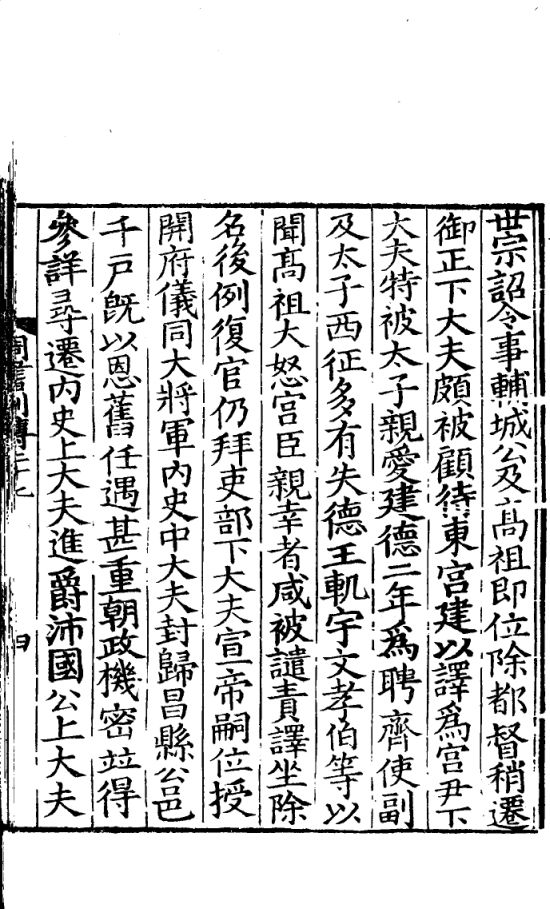 世宗詔令事輔城公及髙祖即位除都督稍遷
御正下大夫頗被顧待東宮建以譯爲宮尹下
大夫特被太子親愛建德二年爲聘齊使副
及太子西征多有失德王軌宇文孝伯等以
聞髙祖大怒宫臣親幸者咸被譴責譯坐除
名後例復官仍拜吏部下大夫宣帝嗣位授
開府儀同大將軍内史中大夫封歸昌縣公邑
千戸旣以恩舊任遇甚重朝政機密竝得
參詳尋遷内史上大夫進爵沛國公上大夫
周書列傳二十七